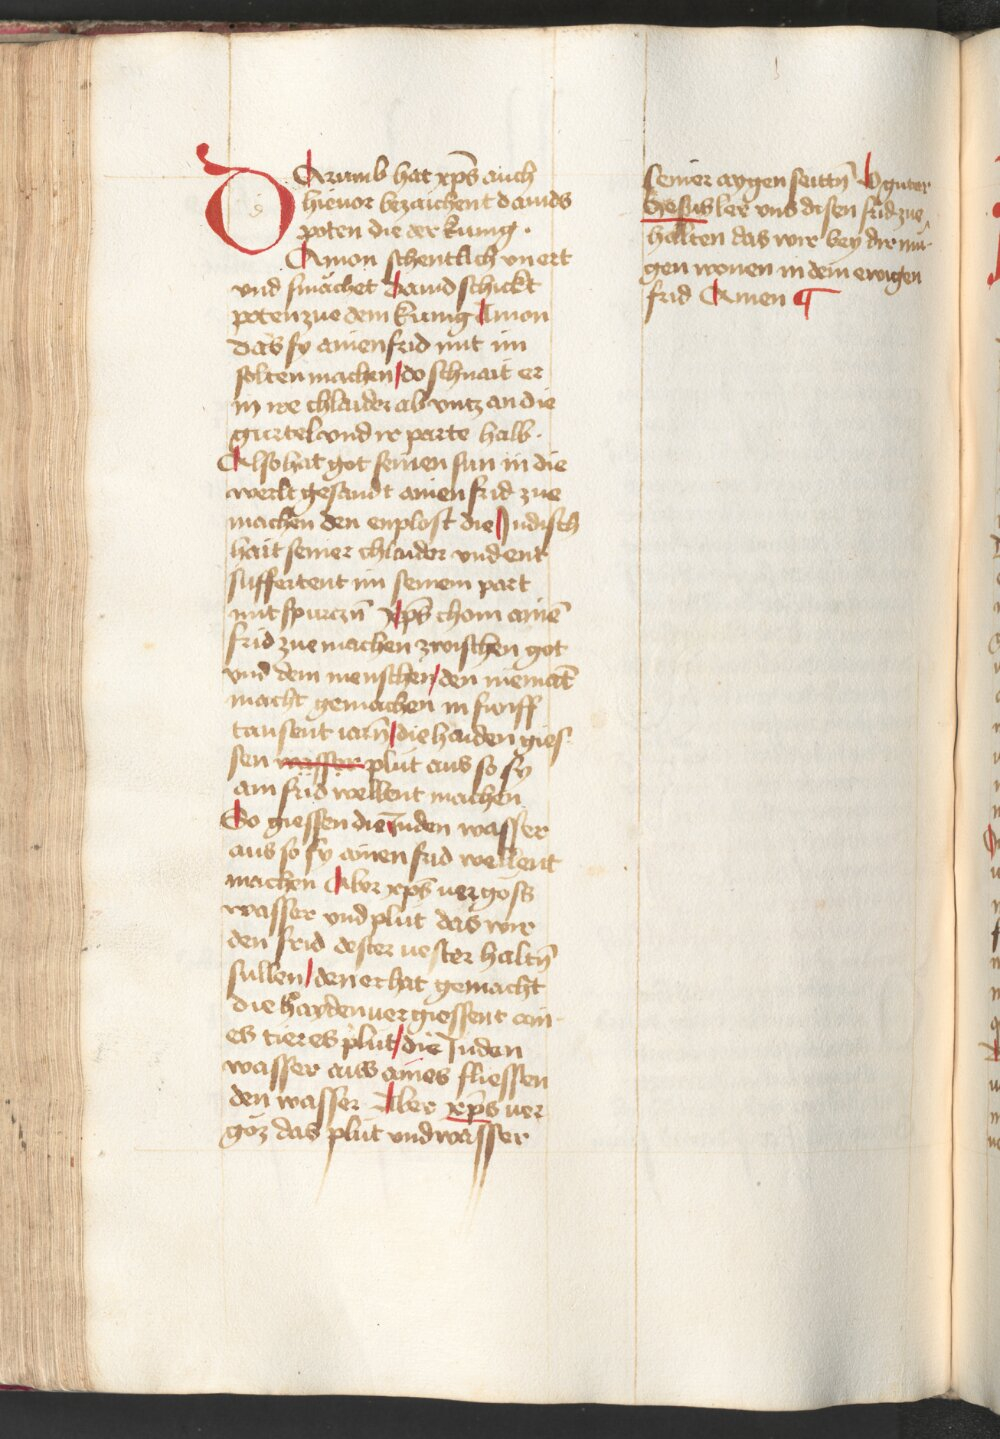 DArumb hat xp̄s auch
hieuor bezaichent dauids
poten die der kunig ·
Amon schentlich vnert
vnd smächet Dauid schickt
poten zue dem kunig Amon
das sy ainen frid mit im
solten machen / do schnait er
in ire chlaider ab vntz an die
gurtel vnd ir parte halb ·
Also hat got seinen sun in die
werlt gesandt ainen frid zue
machen den enplost die Judisch
hait seiner chlaider vnd ent
suffertent im seinem part
mit spurczn̄ xp̄s chom ainē
frid zue machen zwischen got
vnd dem menschen / den niemāt
macht gemachen in funff
tausent iarn̄ / die haiden gies
sen wasser plut aus so sy
ain frid wellent machen
So giessen die Juden wasser
aus so sy ainen frid wellent
machen Aber xp̄s vergoss
wasser vnd plut das wir
den frid dester uester haltn̄
sullen / den er hat gemacht
die hayden uergiessent ain
es tieres plut / die Juden
wasser aus aines fliessen
den wasser Aber xp̄s uer
goz das plut vnd wasser
seiner aygen seittn̄ O guter
Jhesus ler vns disen frid zue
halten das wir bey dir mü
gen wonen in dem ewigen
frid Amen ¶